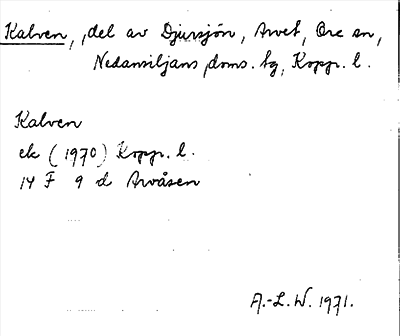 Kalven, del av Djursjön, Arvet, Ore sn,
Nedansiljans doms. tg, Kopp. l.
Kalven
ek (1970) Kopp. l.
14 F 9 d Arvåsen
A.-L. W. 1971.